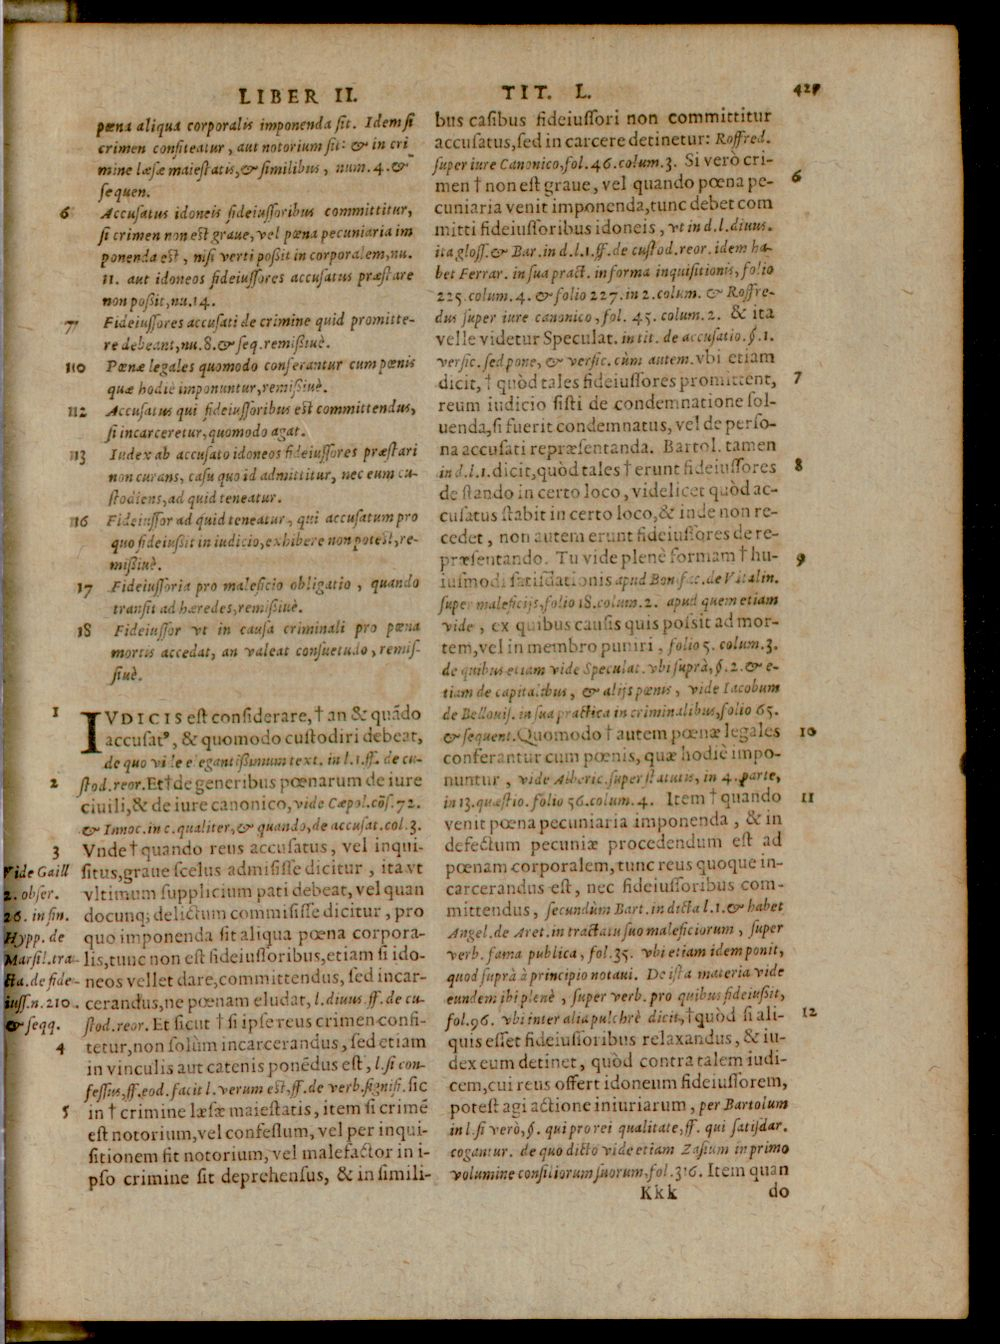 LIBER II. TIT. L. 42
pœna aliqua corporalis imponenda sit. Idem si
crimen confiteatur, aut notorium sit: & in cri
mine læsæ maiestatis, & similibus, num. 4. &
sequen.
6 Accusatus idoneis fideiussoribus committitur,
si crimen non est graue, vel pœna pecuniaria im
ponenda est, nisi verti possit in corporalem, nu.
11. aut idoneos fideiussores accusatus præstare
non possit, nu. 14.
7 Fideiussores accusati de crimine quid promitte-
re debeant, nu. 8. & seq. remissiuè.
10 Pœnæ legales quomodo conferantur cum pœnis
quæ hodiè imponuntur, remissiuè.
12 Accusatus qui fideiussoribus est committendus,
si incarceretur, quomodo agat.
13 Iudex ab accusato idoneos fideiussores præstari
non curans, casu quo id admittitur, nec eum cu-
stodiens, ad quid teneatur.
16 Fideiussor ad quid teneatur, qui accusatum pro
quo fideiussit in iudicio, exhibere non potest, re-
missiuè.
17 Fideiussoria pro maleficio obligatio, quando
transit ad hæredes, remissiuè.
18 Fideiussor vt in causa criminali pro pœna
mortis accedat, an valeat consuetudo, remis-
siuè.
1 IVDICIS est considerare, † an & quãdo
accusatꝰ, & quomodo custodiri debeat,
de quo vide elegantissimum text. in l. 1. ff. de cu-
2 stod. reor. Et † de generibus pœnarum de iure
ciuili, & de iure canonico, vide Cæpol. cõs. 72.
& Innoc. in c. qualiter, & quando, de accusat. col. 3.
3 Vnde † quando reus accusatus, vel inqui-
situs, graue scelus admisisse dicitur, ita vt
vltimum supplicium pati debeat, vel quan
docunq; delictum commisisse dicitur, pro
quo imponenda sit aliqua pœna corpora-
lis, tunc non est fideiussoribus, etiam si ido-
neos vellet dare, committendus, sed incar-
cerandus, ne pœnam eludat, l. diuus. ff. de cu-
stod. reor. Et sicut † si ipse reus crimen confi-
4 tetur, non solùm incarcerandus, sed etiam
in vinculis aut catenis ponẽdus est, l. si con-
fessus, ff. eod. facit l. verum est, ff. de verb. signifi. sic
5 in † crimine læsæ maiestatis, item si crimẽ
est notorium, vel confessum, vel per inqui-
sitionem fit notorium, vel malefactor in i-
pso crimine sit deprehensus, & in simili-
Vide Gaill
2. obser.
26. in fin.
Hypp. de
Marsil. tra-
cta. de fide-
iuss. n. 210.
& seqq.
bus casibus fideiussori non committitur
accusatus, sed in carcere detinetur: Roffred.
super iure Canonico, fol. 46. colum. 3. Si verò cri-
men † non est graue, vel quando pœna pe- 6
cuniaria venit imponenda, tunc debet com
mitti fideiussoribus idoneis, vt in d. l. diuus.
ita gloss. & Bar. in d. l. 1. ff. de custod. reor. idem ha-
bet Ferrar. in sua pract. in forma inquisitionis, folio
225. colum. 4. & folio 227. in 2. colum. & Roffre-
dus super iure canonico, fol. 45. colum. 2. & ita
velle videtur Speculat. in tit. de accusatio. §. 1.
versic. sed pone, & versic. cùm autem. vbi etiam
dicit, † quòd tales fideiussores promittent, 7
reum iudicio sisti de condemnatione sol-
uenda, si fuerit condemnatus, vel de perso-
na accusati repræsentanda. Bartol. tamen
in d. l. 1. dicit, quòd tales † erunt fideiussores 8
de stando in certo loco, videlicet quòd ac-
cusatus stabit in certo loco, & inde non re-
cedet, non autem erunt fideiussores de re-
præsentando. Tu vide plenè formam † hu- 9
iusmodi satisdationis apud Bonifac. de Vitalin.
super maleficijs, folio 18. colum. 2. apud quem etiam
vide, ex quibus causis quis possit ad mor-
tem, vel in membro puniri, folio 5. colum. 3.
de quibus etiam vide Speculat. vbi suprà, §. 2. & e-
tiam de capitalibus, & alijs pœnis, vide Iacobum
de Bellouis. in sua practica in criminalibus, folio 65.
& sequent. Quomodo † autem pœnæ legales 10
conferantur cum pœnis, quæ hodiè impo-
nuntur, vide Alberic. super statutis, in 4. parte,
in 13. quæstio. folio 56. colum. 4. Item † quando 11
venit pœna pecuniaria imponenda, & in
defectum pecuniæ procedendum est ad
pœnam corporalem, tunc reus quoque in-
carcerandus est, nec fideiussoribus com-
mittendus, secundùm Bart. in dicta l. 1. & habet
Angel. de Aret. in tractatu suo maleficiorum, super
verb. fama publica, fol. 35. vbi etiam idem ponit,
quod suprà à principio notaui. De ista materia vide
eundem ibi plenè, super verb. pro quibus fideiussit,
fol. 96. vbi inter alia pulchrè dicit, † quòd si ali- 12
quis esset fideiussoribus relaxandus, & iu-
dex eum detinet, quòd contra talem iudi-
cem, cui reus offert idoneum fideiussorem,
potest agi actione iniuriarum, per Bartolum
in l. si verò, §. qui pro rei qualitate, ff. qui satisdar.
cogantur. de quo dicto vide etiam Zasium in primo
volumine consiliorum suorum, fol. 316. Item quan
Kkk do